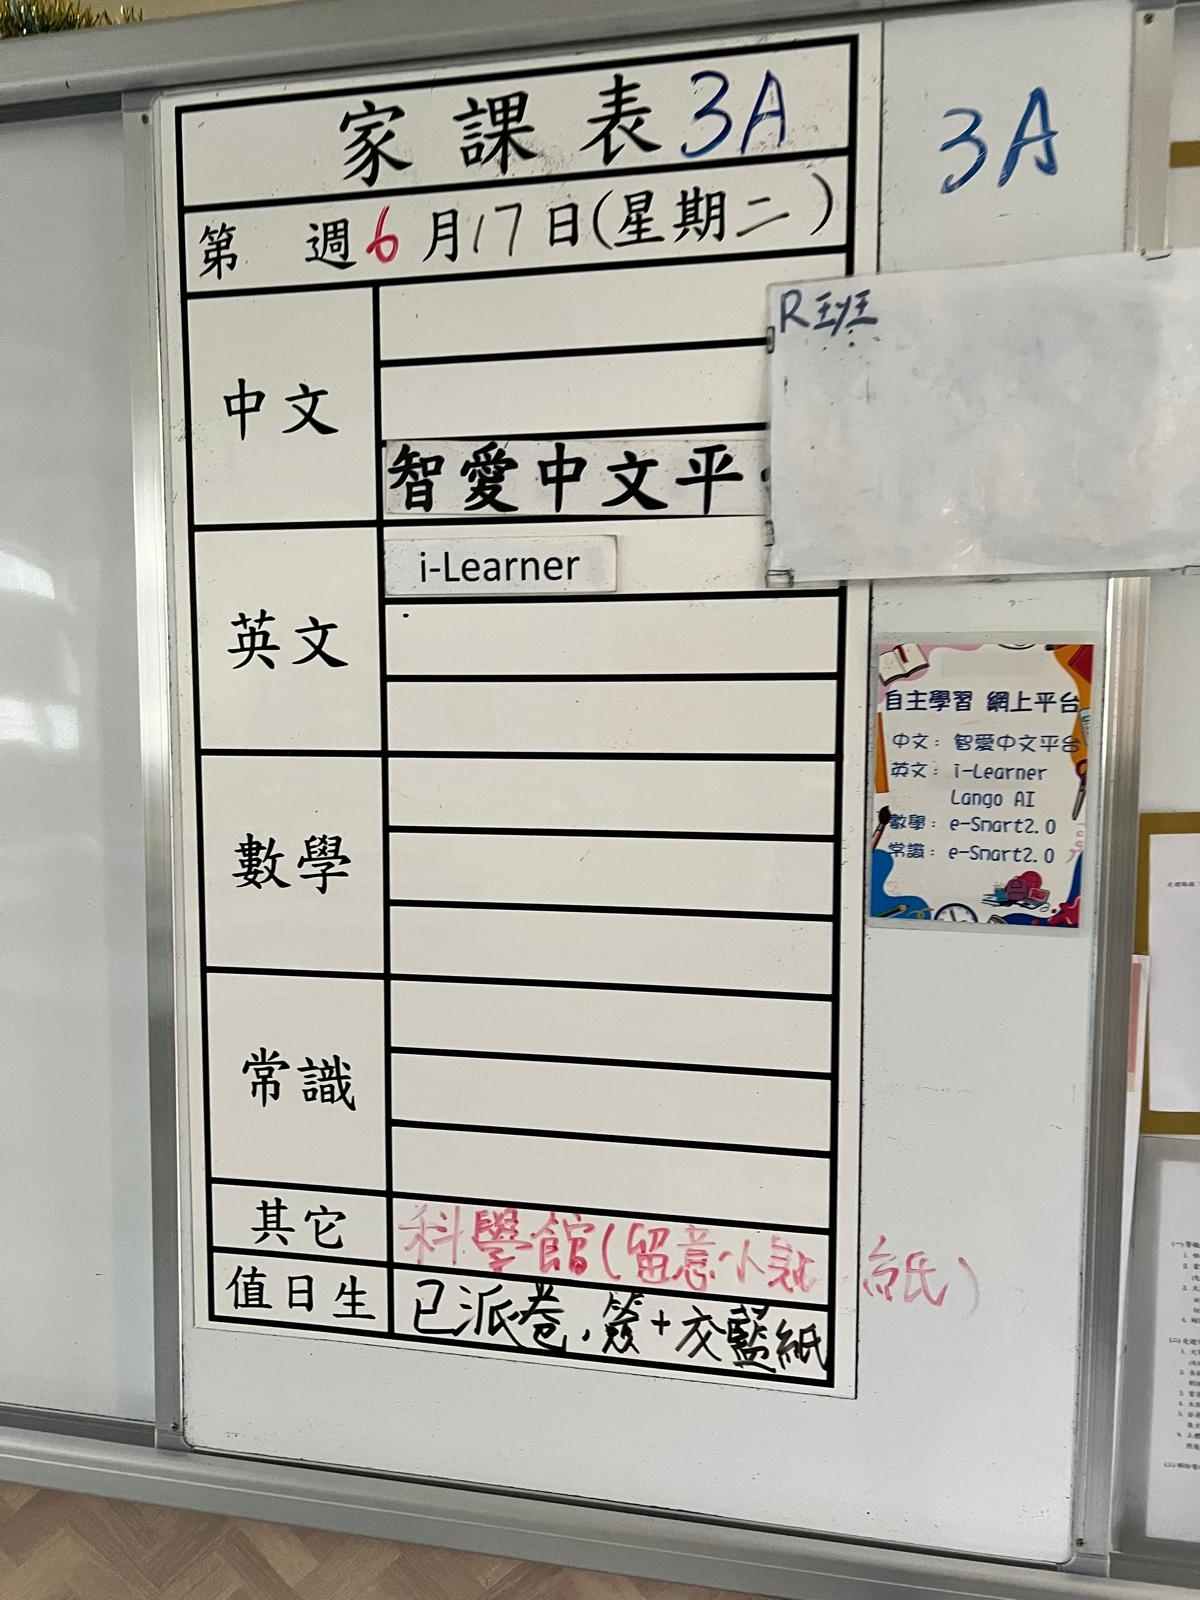 家課表 3A
3A
第 週 6月17日(星期二)
R班
中文
智愛中文平
英文
i-Learner
數學
常識
其它
科學館(留意小 紙)
值日生
已派卷,簽+交藍紙
自主學習 網上平台
中文: 智愛中文平台
英文: i-Learner
Lango AI
數學: e-Smart2.0
常識: e-Smart2.0